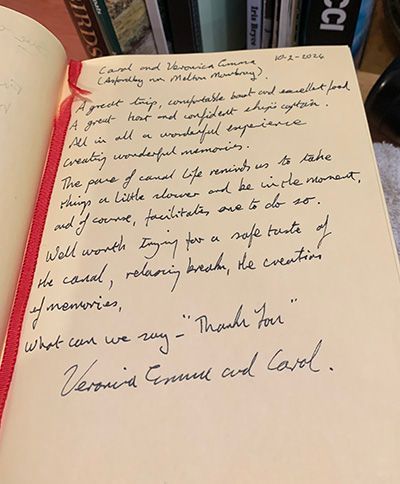 BIRDS
Iris Bryce
CCI
Carol and Veronica Emma 10-2-2024
(Asfordby nr. Melton Mowbray).
A great trip, comfortable boat and excellent food.
A great host and confident ship's captain.
All in all a wonderful experience
creating wonderful memories.
The pace of canal life reminds us to take
things a little slower and be in the moment,
and of course, facilitates one to do so.
Well worth trying for a safe taste of
the canal, relaxing break, the creation
of memories,
What can we say - "Thank You"
Veronica Emma and Carol.